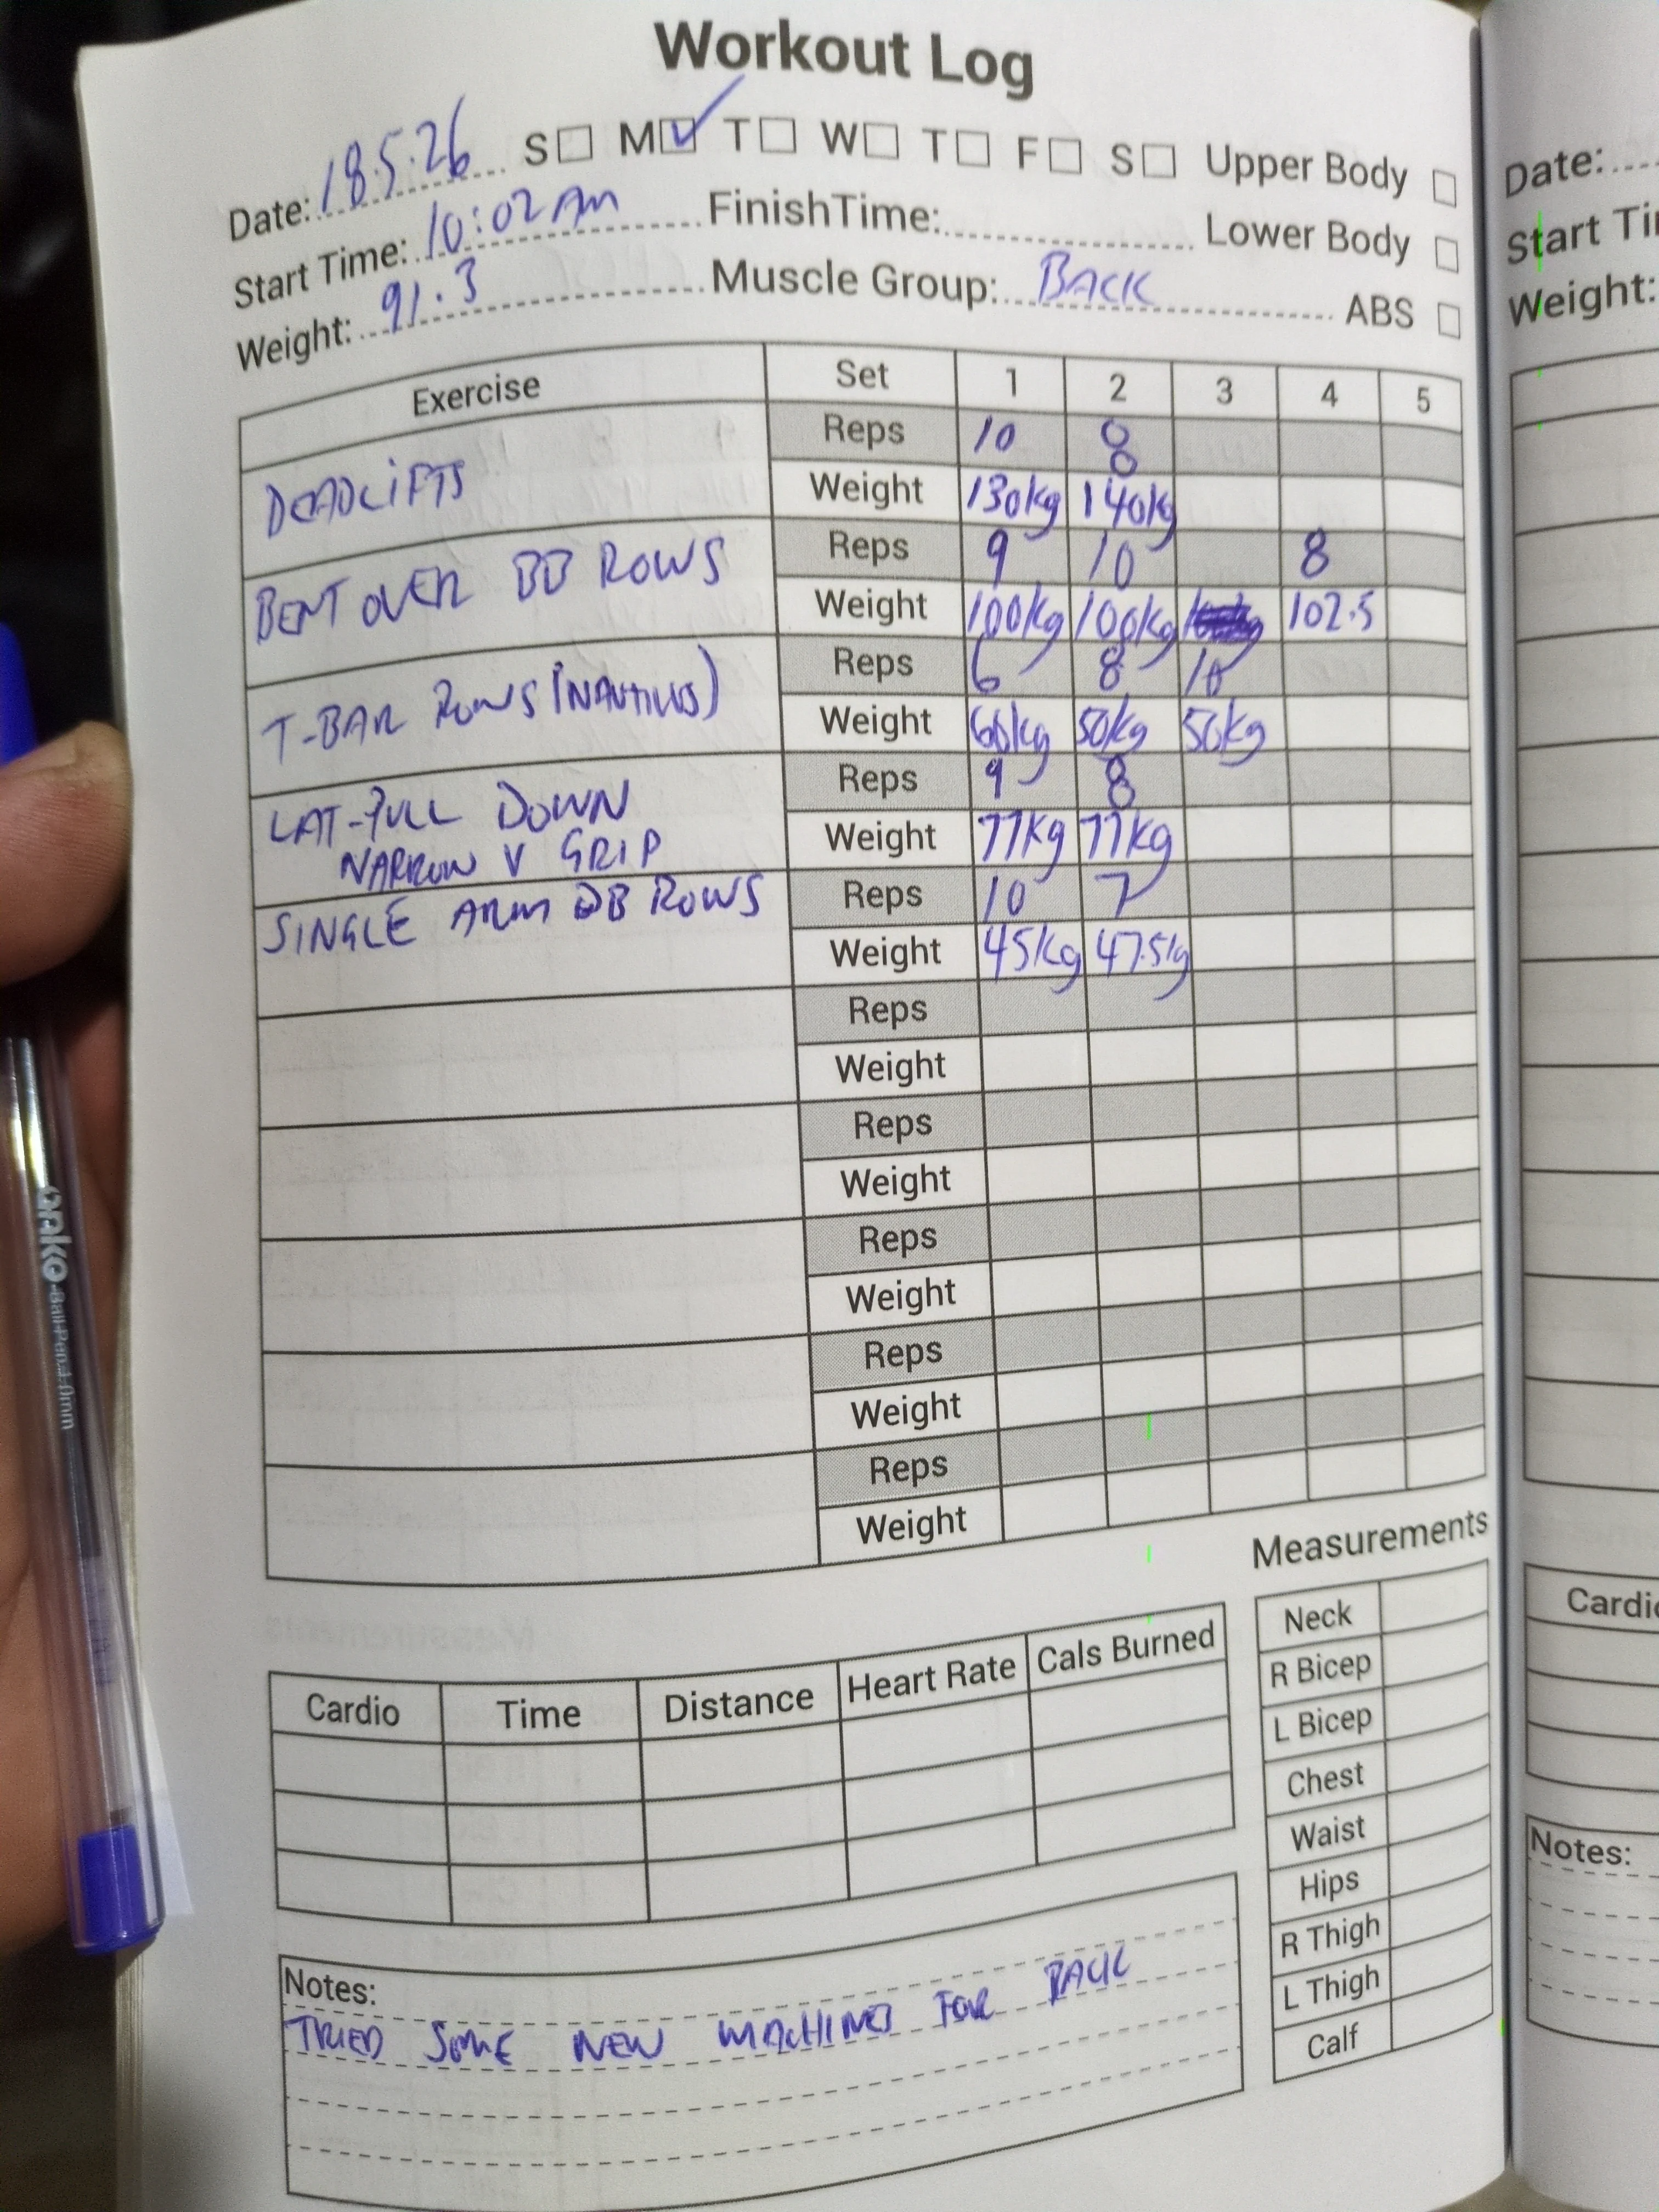 Workout Log
Date: 18.5.26 S M ✓ T W T F S Upper Body
Start Time: 10:02 AM FinishTime: Lower Body
Weight: 91.3 Muscle Group: BACK ABS
Exercise Set 1 2 3 4 5
DEADLIFTS
Reps 10 8
Weight 130kg 140kg
BENT OVER BB ROWS
Reps 9 10 8
Weight 100kg 100kg 102.5
T-BAR ROWS (NAUTILUS)
Reps 6 8 10
Weight 60kg 50kg 50kg
LAT-PULL DOWN
NARROW V GRIP
Reps 9 8
Weight 77kg 77kg
SINGLE ARM DB ROWS
Reps 10 7
Weight 45kg 47.5kg
Reps
Weight
Reps
Weight
Reps
Weight
Reps
Weight
Reps
Weight
Measurements
Neck
R Bicep
L Bicep
Chest
Waist
Hips
R Thigh
L Thigh
Calf
Cardio Time Distance Heart Rate Cals Burned
Notes:
TRIED SOME NEW MACHINES FOR BACK
Date:
Start Ti
Weight:
Cardio
Notes:
Ball Pen 1.0mm